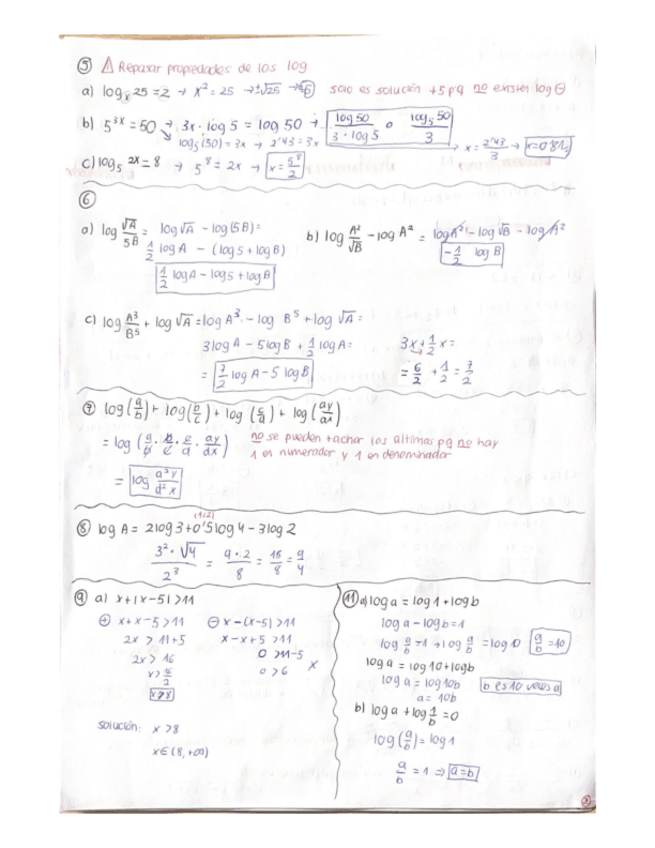 ⑤ ⚠ Repasar propiedades de los log
a) logₓ 25 = 2 → x² = 25 → ±√25 → ±5 solo es solución +5 pq no existen log ⊖
b) 5³ˣ = 50 → 3x · log 5 = log 50 → log 50 / 3 · log 5 o log₅ 50 / 3
log₅(50) = 3x → 2'43 = 3x → x = 2'43/3 → x = 0'81
c) log₅ 2x = 8 → 5⁸ = 2x → x = 5⁸/2
⑥
a) log √A/5B = log √A - log (5B) =
1/2 log A - (log 5 + log B)
1/2 log A - log 5 + log B
b) log A²/√B - log A² = log A² - log √B - log A²
-1/2 log B
c) log A³/B⁵ + log √A = log A³ - log B⁵ + log √A =
3 log A - 5 log B + 1/2 log A =
= 7/2 log A - 5 log B
3x + 1/2 x =
= 6/2 + 1/2 = 7/2
⑦ log (a/b) + log (b/c) + log (c/d) + log (ay/dx)
= log (a/b · b/c · c/d · ay/dx)
no se pueden tachar los últimos pq no hay
1 en numerador y 1 en denominador
= log a²y/d²x
⑧ log A = 2 log 3 + 0'5 log 4 - 3 log 2
(1/2)
3² · √4 / 2³ = 9 · 2 / 8 = 18/8 = 9/4
⑨ a) x + |x - 5| > 11
⊕ x + x - 5 > 11
2x > 11 + 5
2x > 16
x > 16/2
x > 8
⊖ x - (x - 5) > 11
x - x + 5 > 11
0 > 11 - 5
0 > 6 x
solución: x > 8
x ∈ (8, +∞)
⑪ a) log a = log 1 + log b
log a - log b = 1
log a/b = 1 → log a/b = log 10 a/b = 10
log a = log 10 + log b
log a = log 10b b es 10 veces a
a = 10b
b) log a + log 1/b = 0
log (a/b) = log 1
a/b = 1 ⇒ a = b